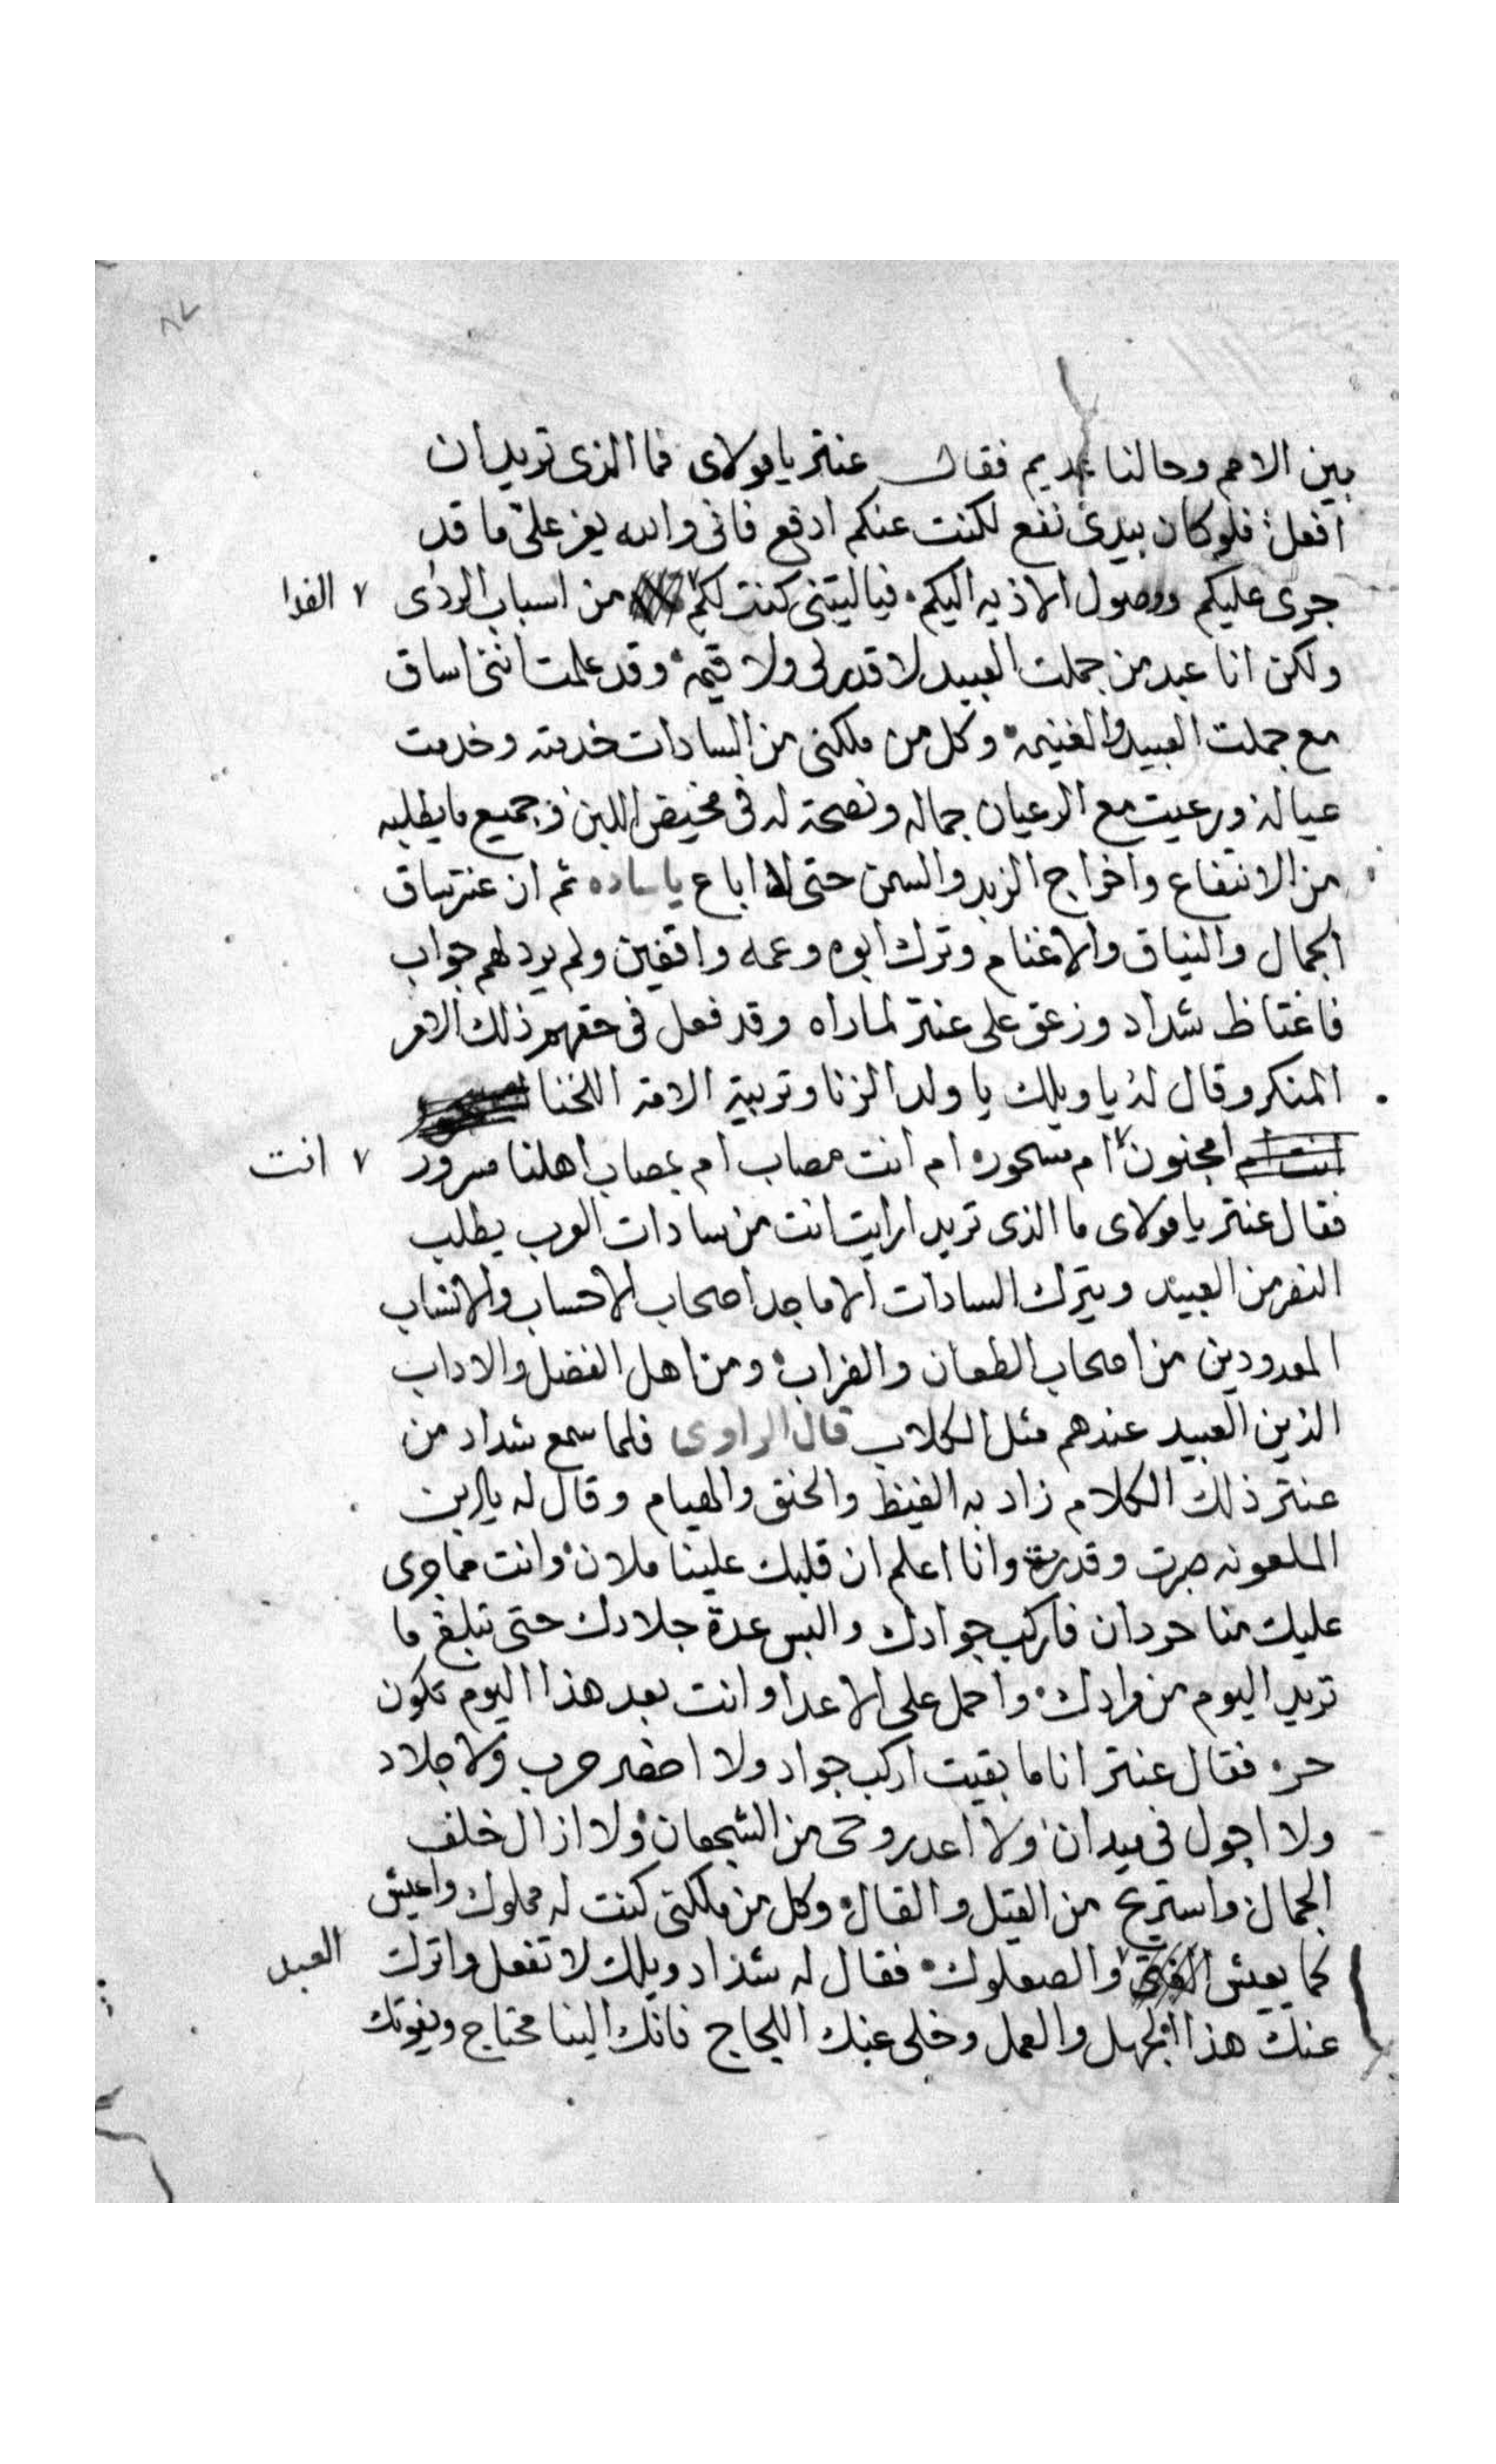 ٨٧
بين الامم وحالنا عديم فقال عنتر يا مولاى فما الذى تريد ان
افعل فلو كان بيدى نفع لكنت عنكم ادفع فانى والله يعز على ما قد
جرى عليكم ووصول الاذيه اليكم فياليتنى كنت لكم من اسباب الردى ٧ الفدا
ولكن انا عبد من جملت العبيد لا قدر لى ولا قيمه وقد علمت اننى اساق
مع جملت العبيد والغنيمه وكل من ملكنى من السادات خدمته وخدمت
عياله ورعيت مع الرعيان جماله ونصحته له فى مخيض اللبن وجميع ما يطلبه
من الانتفاع واخراج الزبد والسمن حتى لا اباع يا ساده ثم ان عنتر ساق
الجمال والنياق والاغنام وترك ابوه وعمه واقفين ولم يرد لهم جواب
فاغتاظ شداد وزعق على عنتر لما راه وقد فعل فى حقهم ذلك الامر
المنكر وقال له يا ويلك يا ولد الزنا وتربية الامه اللخنا
انت ام امجنون ام مسحور ام انت مصاب ام بمصاب اهلنا مسرور ٧ انت
فقال عنتر يا مولاى ما الذى تريد ارايت انت من سادات العرب يطلب
النفر من العبيد ويترك السادات الاماجد اصحاب الاحساب والانساب
المعدودين من اصحاب الطعان والضراب ومن اهل الفضل والاداب
الذين العبيد عندهم مثل الكلاب قال الراوى فلما سمع شداد من
عنتر ذلك الكلام زاد به الغيظ والحنق والهيام وقال له يا ابن
الملعونه صرت وقدرت وانا اعلم ان قلبك علينا ملان وانت مما جرى
عليك منا حردان فاركب جوادك والبس عدة جلادك حتى تبلغ ما
تريد اليوم من مرادك واحمل على الاعدا وانت بعد هذا اليوم تكون
حر فقال عنتر انا ما بقيت اركب جواد ولا احضر حرب ولا جلاد
ولا اجول فى ميدان ولا اعد روحى من الشجعان ولا ازال خلف
الجمال واستريح من القيل والقال وكل من ملكنى كنت له مملوك واعيش
كما يعيش والصعلوك فقال له شداد ويلك لا تفعل واترك العبد
عنك هذا الجهل والعمل وخلى عنك اللجاج فانك الينا محتاج ويفوتك